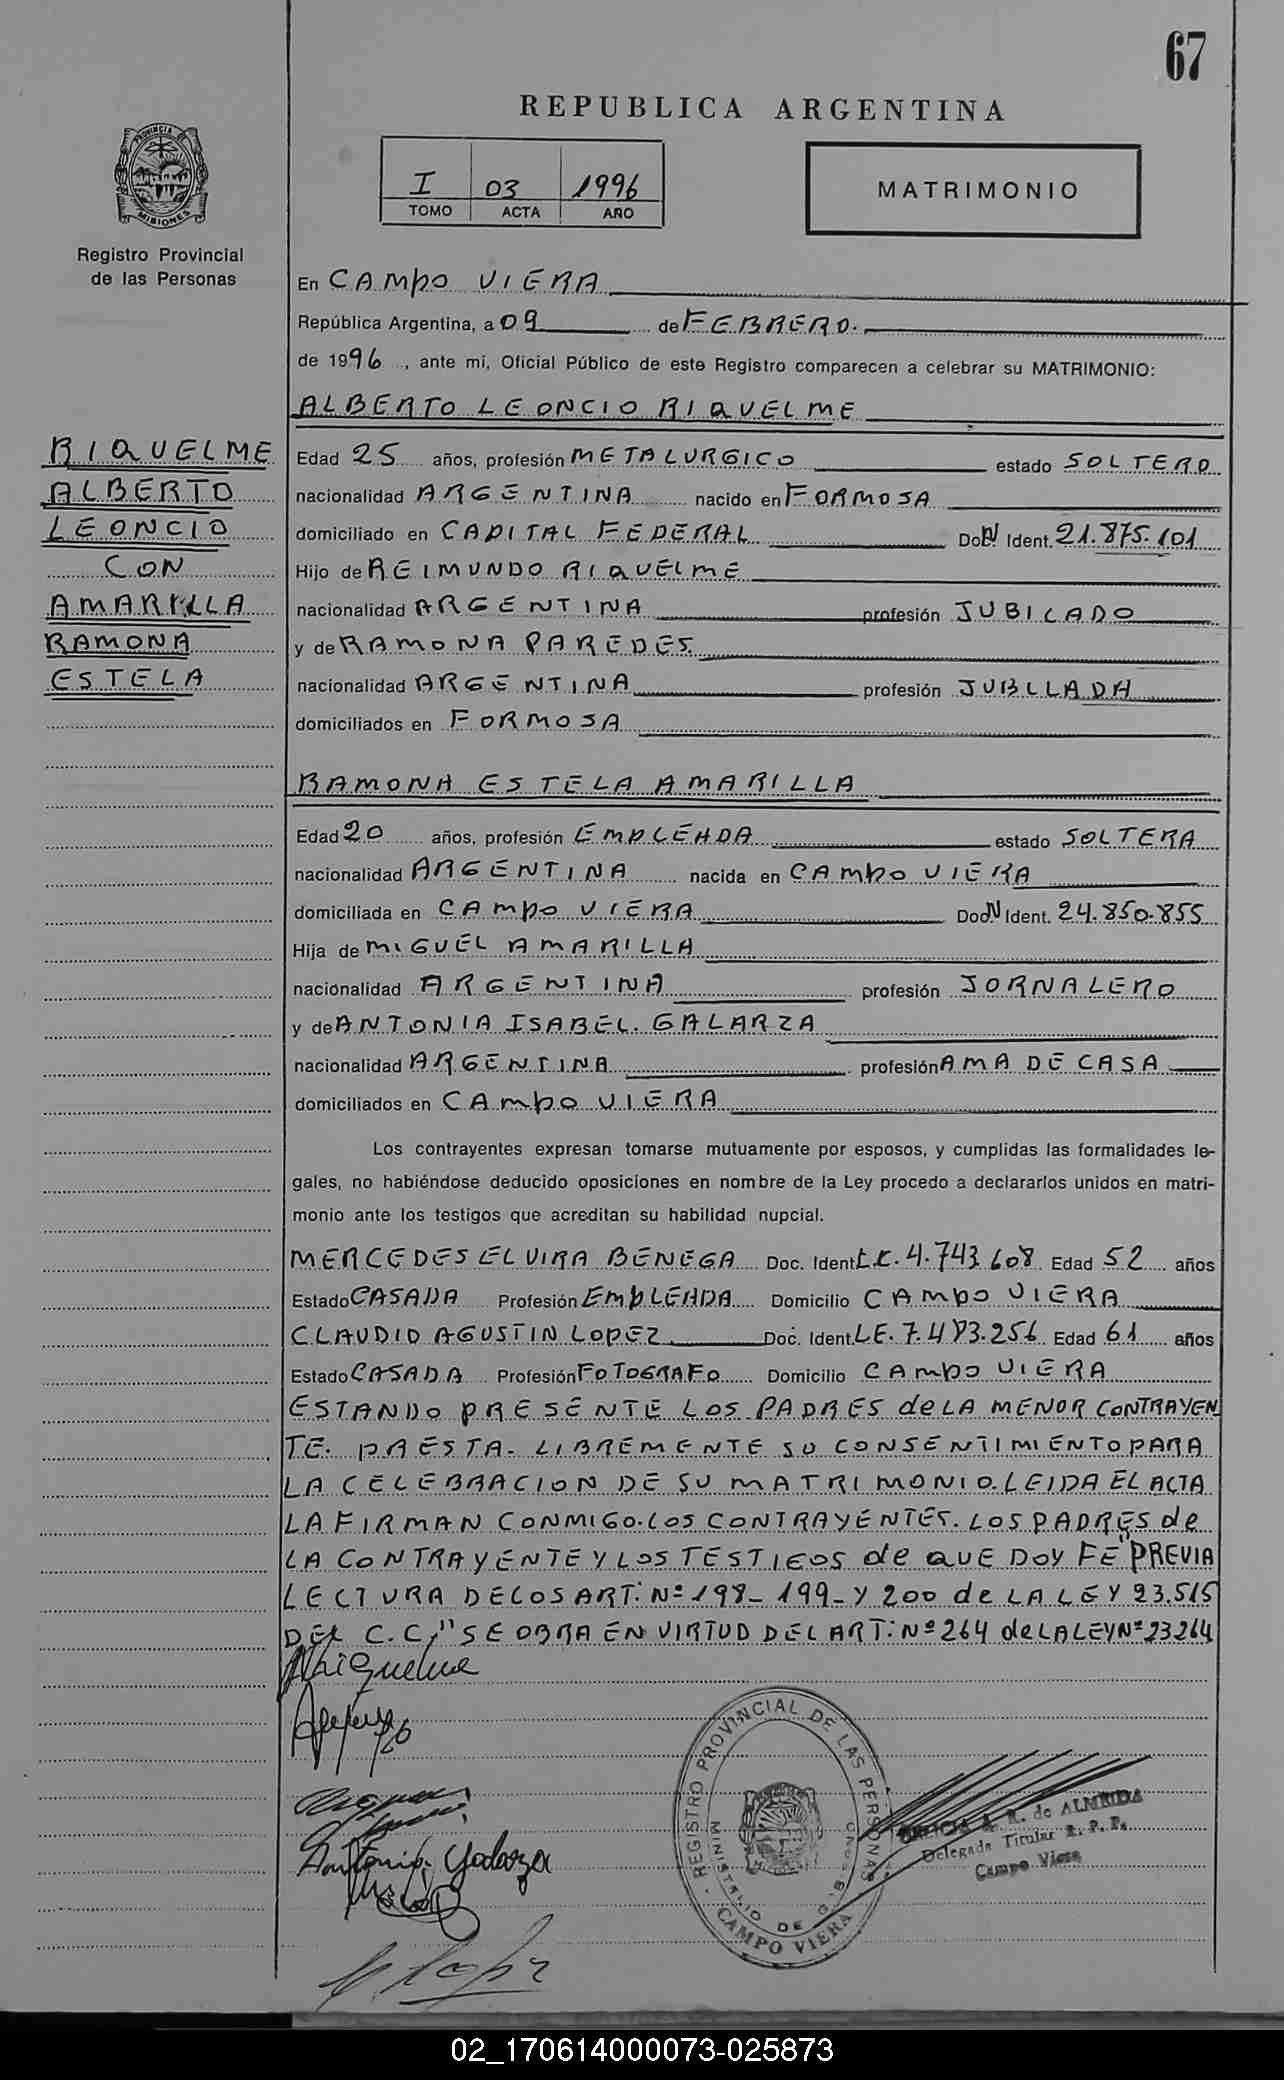 67
REPUBLICA ARGENTINA
PROVINCIA DE
MISIONES
Registro Provincial
de las Personas
I 03 1996
TOMO ACTA AÑO
MATRIMONIO
En CAMPO VIERA
República Argentina, a 09 de FEBRERO.
de 1996, ante mí, Oficial Público de este Registro comparecen a celebrar su MATRIMONIO:
ALBERTO LEONCIO RIQUELME
RIQUELME
ALBERTO
LEONCIO
CON
AMARILLA
RAMONA
ESTELA
Edad 25 años, profesión METALURGICO estado SOLTERO
nacionalidad ARGENTINA nacido en FORMOSA
domiciliado en CAPITAL FEDERAL Ident. 21.875.101
Hijo de REIMUNDO RIQUELME
nacionalidad ARGENTINA profesión JUBILADO
y de RAMONA PAREDES.
nacionalidad ARGENTINA profesión JUBILADA
domiciliados en FORMOSA
RAMONA ESTELA AMARILLA
Edad 20 años, profesión EMPLEADA estado SOLTERA
nacionalidad ARGENTINA nacida en CAMPO VIERA
domiciliada en CAMPO VIERA Ident. 24.850.855
Hija de MIGUEL AMARILLA
nacionalidad ARGENTINA profesión JORNALERO
y de ANTONIA ISABEL. GALARZA
nacionalidad ARGENTINA profesión AMA DE CASA
domiciliados en CAMPO VIERA
Los contrayentes expresan tomarse mutuamente por esposos, y cumplidas las formalidades le-
gales, no habiéndose deducido oposiciones en nombre de la Ley procedo a declararlos unidos en matri-
monio ante los testigos que acreditan su habilidad nupcial.
MERCEDES ELVIRA BENEGA Doc. Ident. L.C. 4.743.608 Edad 52 años
Estado CASADA Profesión EMPLEADA Domicilio CAMPO VIERA
CLAUDIO AGUSTIN LOPEZ. Doc. Ident. LE. 7.483.256 Edad 61 años
Estado CASADA Profesión FOTOGRAFO Domicilio CAMPO VIERA
ESTANDO PRESENTE LOS PADRES de LA MENOR CONTRAYEN
TE. PRESTA. LIBREMENTE SU CONSENTIMIENTO PARA
LA CELEBRACION DE SU MATRIMONIO. LEIDA EL ACTA
LA FIRMAN CONMIGO. LOS CONTRAYENTES. LOS PADRES de
LA CONTRAYENTE Y LOS TESTIGOS de QUE DOY FE "PREVIA
LECTURA DE LOS ART: Nº 198- 199- Y 200 de LA LEY 23.515
DEL C.C," SE OBRA EN VIRTUD DEL ART: Nº 264 de LA LEY Nº 23264
ARiquelme
Antonia. Galarza
REGISTRO PROVINCIAL DE LAS PERSONAS
MINISTERIO DE GOBIERNO
CAMPO VIERA
A. R. de ALMEIDA
Delegada Titular R. P. P.
Campo Viera
02_170614000073-025873